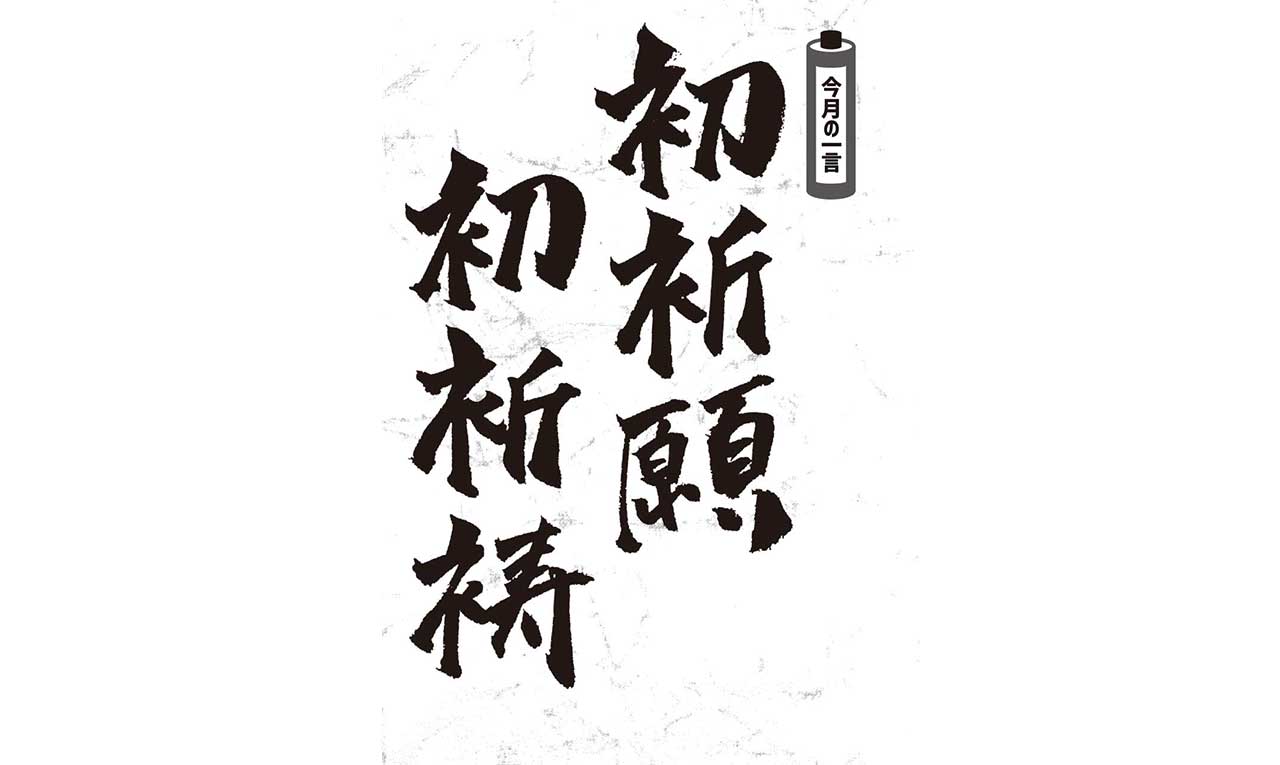 今月の一言
初祈願
初祈祷